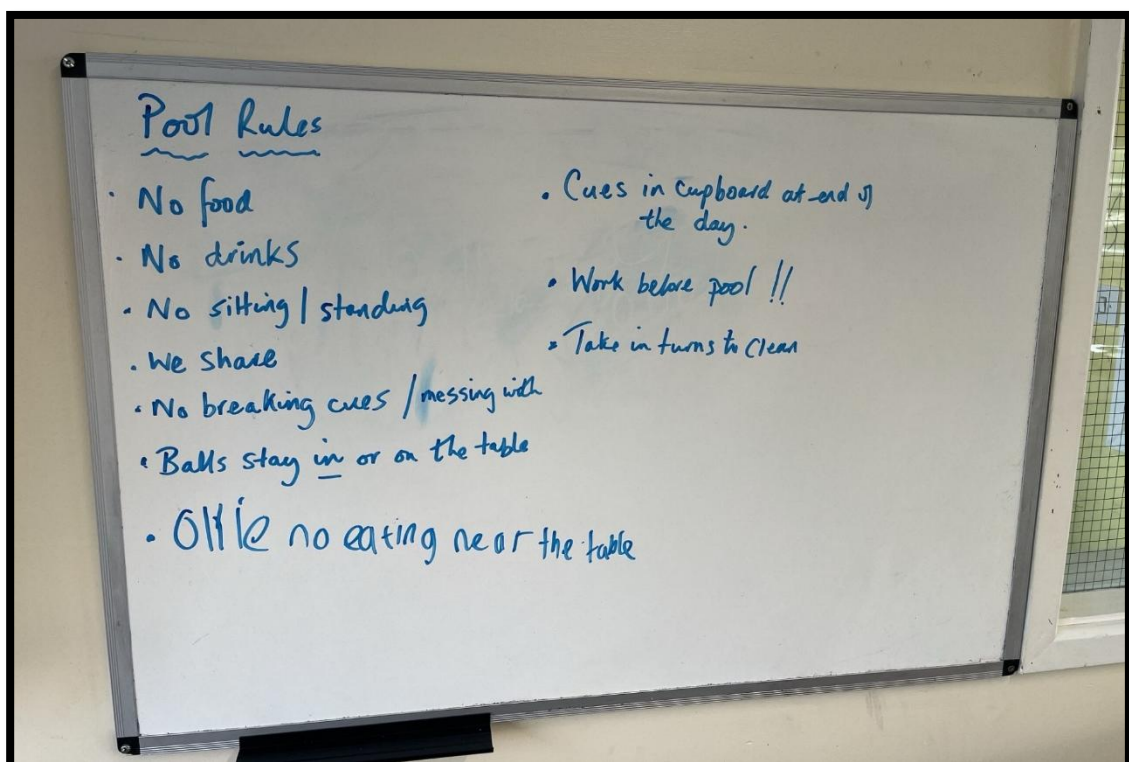 Pool Rules
· No food
· No drinks
· No sitting / standing
· We share
· No breaking cues / messing with
· Balls stay in or on the table
· Ollie no eating near the table
· Cues in cupboard at end of
the day.
· Work before pool !!
· Take in turns to clean